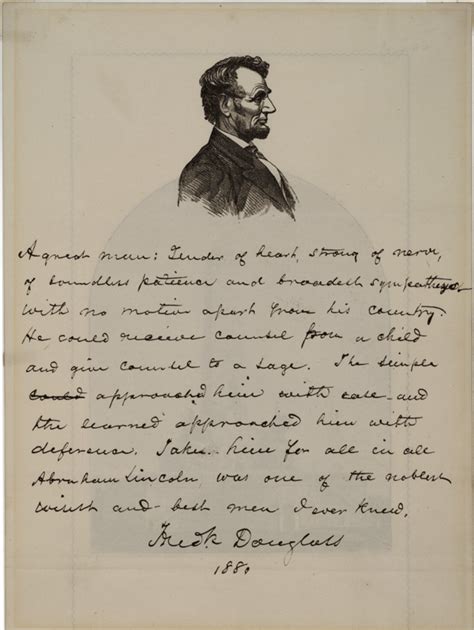 A great man: Tender of heart, strong of nerve,
of boundless patience and broadest sympathy
with no motive apart from his country.
He could receive counsel from a child
and give counsel to a sage. The simple
could approached him with ease and
the learned approached him with
deference. Take him for all in all
Abraham Lincoln was one of the noblest
wisest and best men I ever knew.
Fredk Douglass
1880